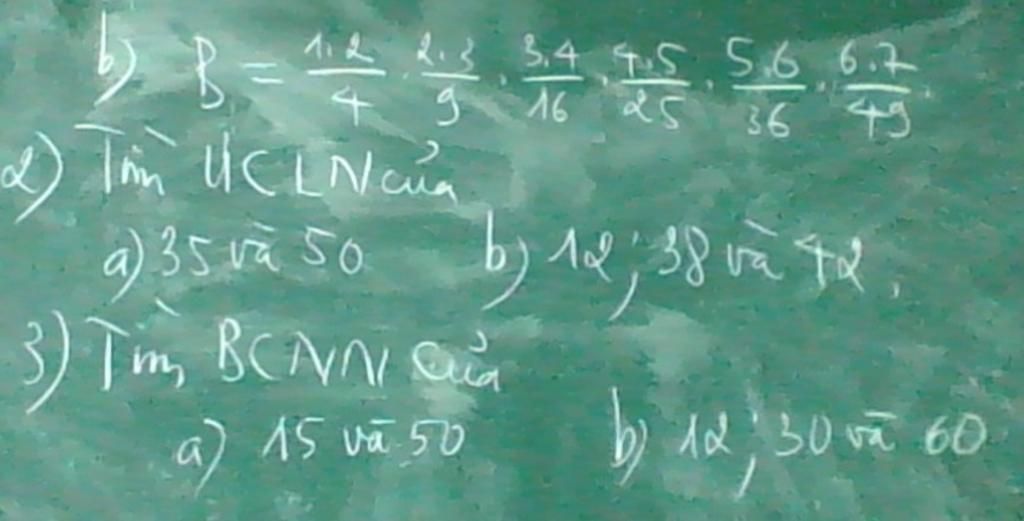 b) B = 1.2/4 . 2.3/9 . 3.4/16 . 4.5/25 . 5.6/36 . 6.7/49.
2) Tìm ƯCLN của
a) 35 và 50 b) 12; 38 và 42.
3) Tìm BCNN của
a) 15 và 50 b) 12; 30 và 60